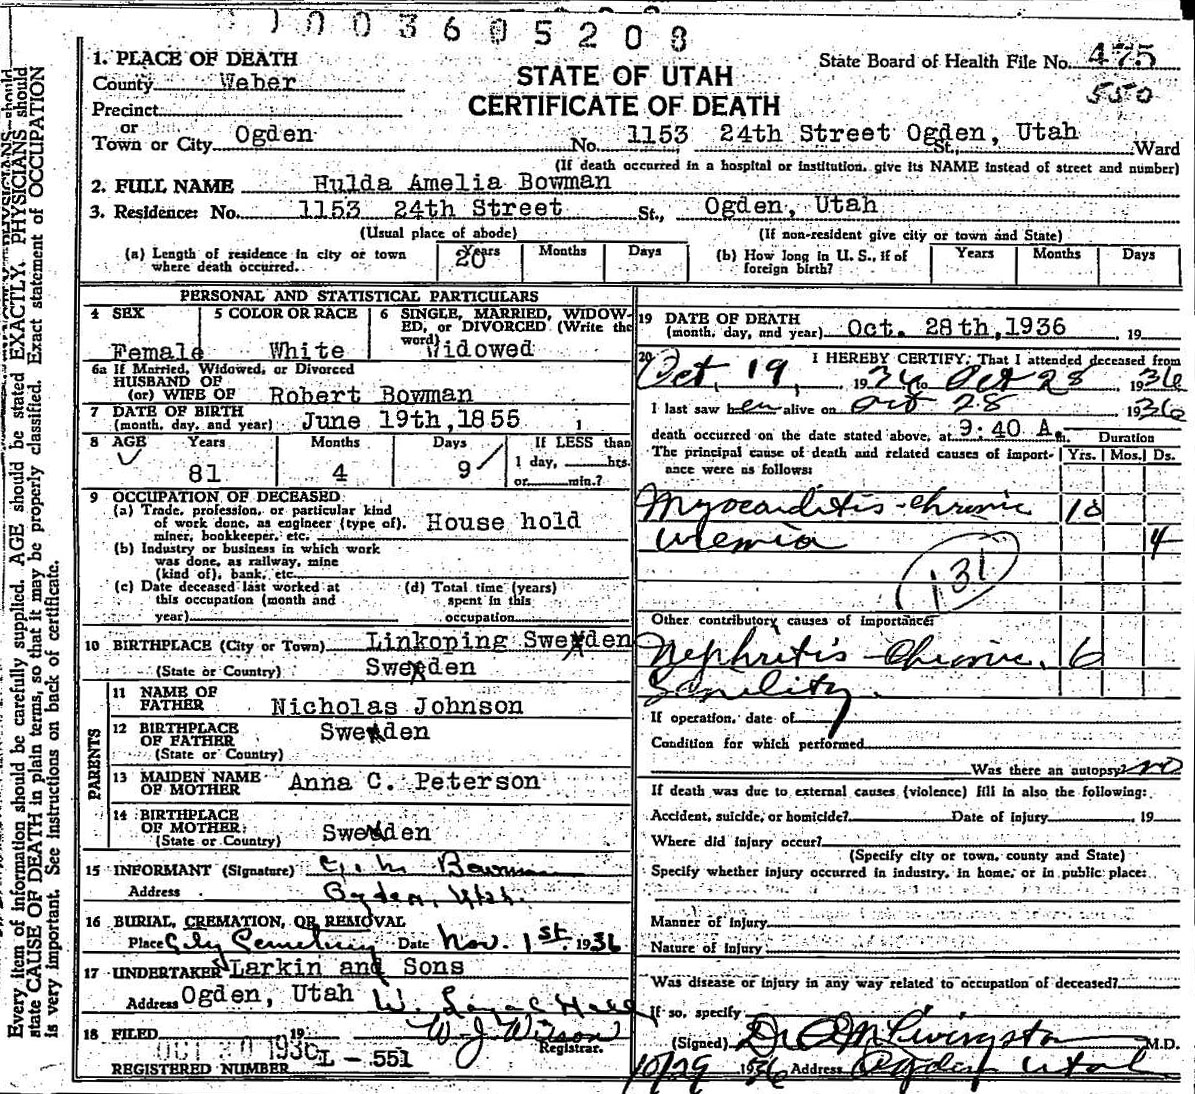 0003605208
1. PLACE OF DEATH
County Weber
STATE OF UTAH
State Board of Health File No. 475
CERTIFICATE OF DEATH
550
Precinct
or
Town or City Ogden No. 1153 24th Street Ogden, Utah St., Ward
(If death occurred in a hospital or institution, give its NAME instead of street and number)
2. FULL NAME Hulda Amelia Bowman
3. Residence: No. 1153 24th Street St., Ogden, Utah
(Usual place of abode) (If non-resident give city or town and State)
(a) Length of residence in city or town where death occurred. 20 Years Months Days
(b) How long in U. S., if of foreign birth? Years Months Days
PERSONAL AND STATISTICAL PARTICULARS
4 SEX 5 COLOR OR RACE 6 SINGLE, MARRIED, WIDOWED, or DIVORCED (Write the word)
Female White Widowed
6a If Married, Widowed, or Divorced
HUSBAND OF
(or) WIFE OF Robert Bowman
7 DATE OF BIRTH
(month, day, and year) June 19th, 1855
8 AGE Years Months Days If LESS than
81 4 9 1 day, hrs.
or min.?
9 OCCUPATION OF DECEASED
(a) Trade, profession, or particular kind
of work done, as engineer (type of), House hold
miner, bookkeeper, etc.
(b) Industry or business in which work
was done, as railway, mine
(kind of), bank, etc.
(c) Date deceased last worked at
this occupation (month and
year)
(d) Total time (years)
spent in this
occupation
10 BIRTHPLACE (City or Town) Linkoping Sweden
(State or Country) Sweden
PARENTS
11 NAME OF
FATHER Nicholas Johnson
12 BIRTHPLACE
OF FATHER Sweden
(State or Country)
13 MAIDEN NAME
OF MOTHER Anna C. Peterson
14 BIRTHPLACE
OF MOTHER: Sweden
(State or Country)
15 INFORMANT (Signature) Bowman
Address Ogden, Utah.
16 BURIAL, CREMATION, OR REMOVAL
Place City Cemetery Date Nov. 1st. 1936
17 UNDERTAKER Larkin and Sons
Address Ogden, Utah
18 FILED OCT 30 1936 19
W. J. Wilson
Registrar.
REGISTERED NUMBER L - 551
19 DATE OF DEATH
(month, day, and year) Oct. 28th, 1936 19
20 I HEREBY CERTIFY, That I attended deceased from
Oct, 19, 1936 to Oct 28 1936
I last saw h er alive on Oct 28 1936
death occurred on the date stated above, at 9:40 A. m. Duration
The principal cause of death and related causes of importance were as follows: Yrs. Mos. Ds.
Myocarditis-Chronic 10
uremia 4
131
Other contributory causes of importance:
Nephritis-Chronic. 6
Senility.
If operation, date of
Condition for which performed
Was there an autopsy no
If death was due to external causes (violence) fill in also the following:
Accident, suicide, or homicide? Date of injury , 19
Where did injury occur?
(Specify city or town, county and State)
Specify whether injury occurred in industry, in home, or in public place:
Manner of injury
Nature of injury
Was disease or injury in any way related to occupation of deceased?
If so, specify
(Signed) Dr. Livingston M.D.
10/29 1936 Address Ogden Utah
Every item of information should be carefully supplied. AGE should be stated EXACTLY. PHYSICIANS should
state CAUSE OF DEATH in plain terms, so that it may be properly classified. Exact statement of OCCUPATION
is very important. See instructions on back of certificate.